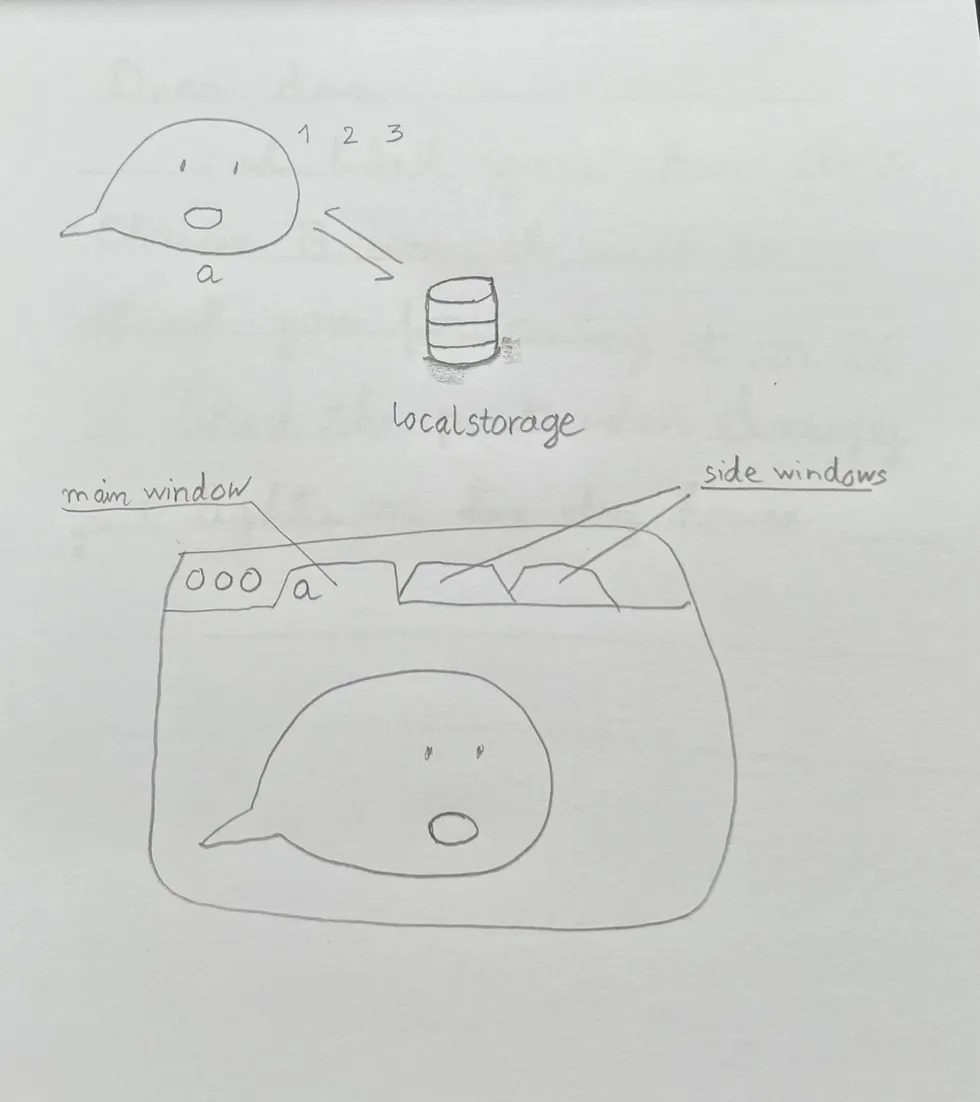 1 2 3
a
localstorage
main window
side windows
a